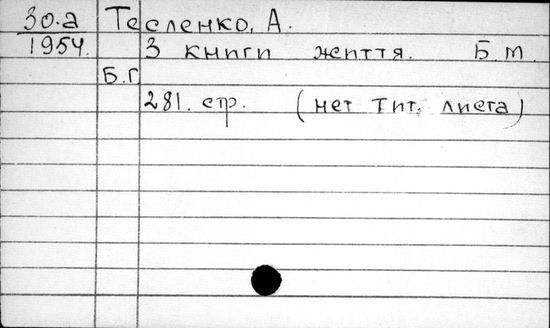 30.а Тесленко, А.
1954. З книги життя. Б.м.
Б.г.
281. стр. (нет тит. листа)